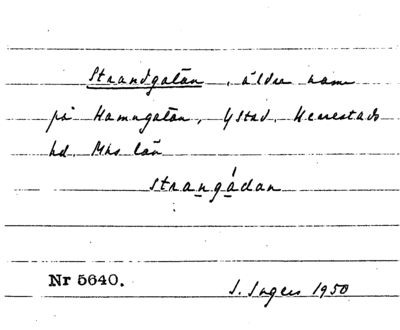 Strandgatan, äldre namn
på Hamngatan, Ystad, Herrestads
hd. Mhs län
strangádan
Nr 5640.
I. Ingers 1950